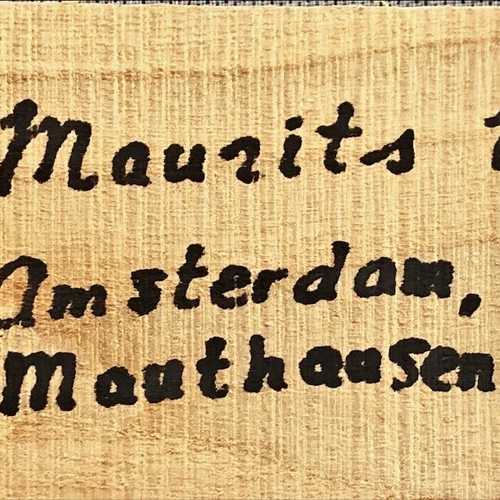 Maurits
Amsterdam,
Mauthausen